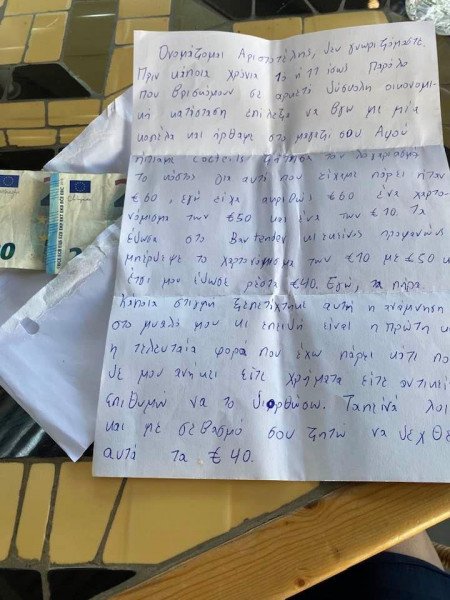 Ονομάζομαι Αριστοτέλης, δεν γνωριζόμαστε.
Πριν κάποια χρόνια 10 ή 11 ίσως παρόλο
που βρισκόμουν σε αρκετά δύσκολη οικονομι-
κή κατάσταση επέλεξα να βγω με μία
κοπέλα και ήρθαμε στο μαγαζί σου Αφού
ήπιαμε cocteils ζήτησα τον λογαριασμό
Το κόστος για αυτά που είχαμε πάρει ήταν
€60, εγώ είχα ακριβώς €60 ένα χαρτο-
νόμισμα των €50 και ένα των €10. Τα
έδωσα στο Bartender κι εκείνος προφανώς
μπέρδεψε το χαρτονόμισμα των €10 με €50 κ
έτσι μου έδωσε ρέστα €40. Εγώ, τα πήρα.
Κάποια στιγμή ξεπετάχτηκε αυτή η ανάμνηση
στο μυαλό μου κι επειδή είναι η πρώτη κ
η τελευταία φορά που έχω πάρει κάτι πο
δε μου ανήκει είτε χρήματα είτε αντικεί
επιθυμώ να το διορθώσω. Ταπεινά λοι
και με σεβασμό σου ζητώ να δεχθε
αυτά τα €40.
20